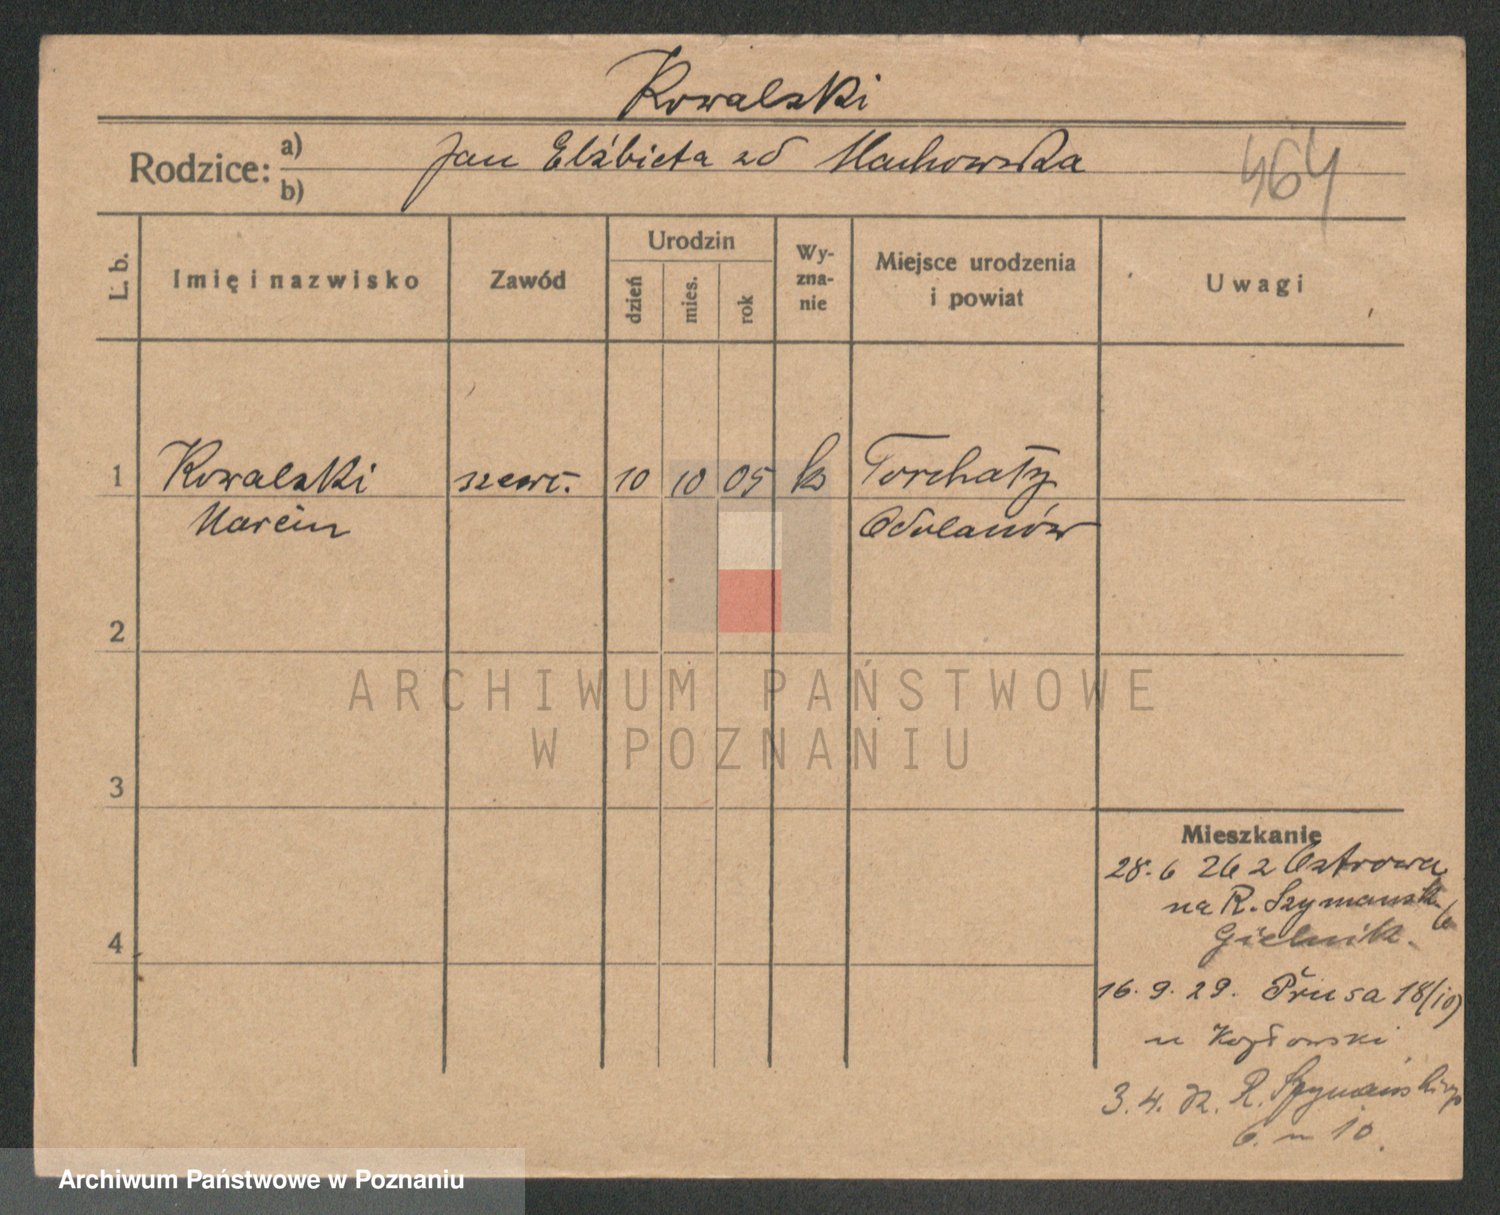 Kowalski
Rodzice: a) Jan Elżbieta zd Machowska
b)
464
L. b. Imię i nazwisko Zawód Urodzin dzień mies. rok Wyznanie Miejsce urodzenia i powiat Uwagi
1 Kowalski szewc. 10 10 05 k Torchały
Marcin Odolanów
2
ARCHIWUM PAŃSTWOWE
W POZNANIU
3
Mieszkanie
28.6 26 z Ostrowa
na R. Szymańsk 6
4
Gielnik.
16.9.29. Prusa 18/10)
u Kozłowski
3.4.32. R. Szymańskiego
6. m 10.
Archiwum Państwowe w Poznaniu